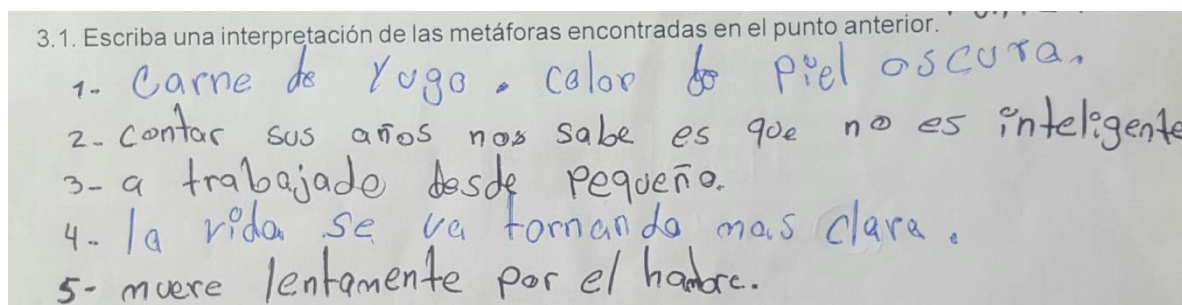 3.1. Escriba una interpretación de las metáforas encontradas en el punto anterior.
1- Carne de Yugo. color de piel oscura.
2- contar sus años nos sabe es que no es inteligente
3- a trabajado desde pequeño.
4- la vida se va tornando mas clara.
5- muere lentamente por el hambre.